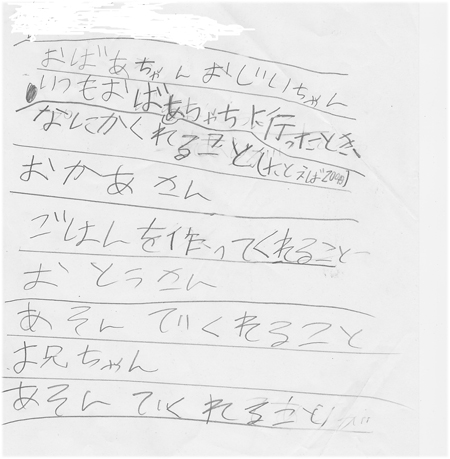 おばあちゃん おじいちゃん
いつもおばあちゃちに行ったとき、
なにかくれること(たとえば
おかあさん
ごはんを作ってくれること
おとうさん
あそんでくれること
お兄ちゃん
あそんでくれること